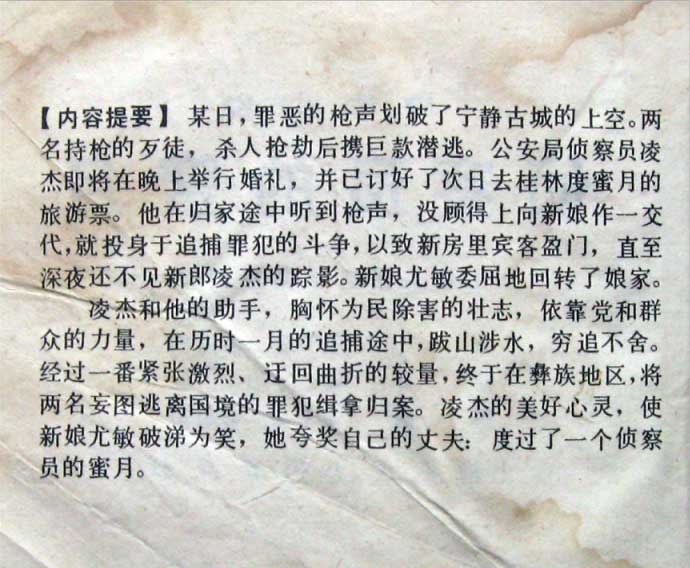 【内容提要】 某日，罪恶的枪声划破了宁静古城的上空。两
名持枪的歹徒，杀人抢劫后携巨款潜逃。公安局侦察员凌
杰即将在晚上举行婚礼，并已订好了次日去桂林度蜜月的
旅游票。他在归家途中听到枪声，没顾得上向新娘作一交
代，就投身于追捕罪犯的斗争，以致新房里宾客盈门，直至
深夜还不见新郎凌杰的踪影。新娘尤敏委屈地回转了娘家。
凌杰和他的助手，胸怀为民除害的壮志，依靠党和群
众的力量，在历时一月的追捕途中，跋山涉水，穷追不舍。
经过一番紧张激烈、迂回曲折的较量，终于在彝族地区，将
两名妄图逃离国境的罪犯缉拿归案。凌杰的美好心灵，使
新娘尤敏破涕为笑，她夸奖自己的丈夫：度过了一个侦察
员的蜜月。